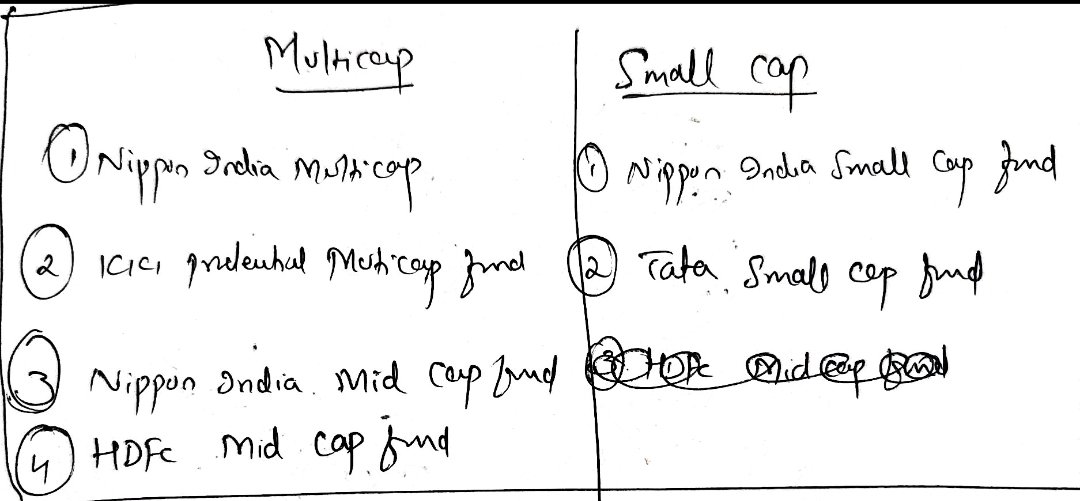 Multicap
① Nippon India Multicap
② ICICI prudential Multicap fund
③ Nippon India Mid Cap fund
④ HDFC Mid cap fund
Small cap
① Nippon India Small Cap fund
② Tata Small cap fund
③ HDFC Mid Cap fund